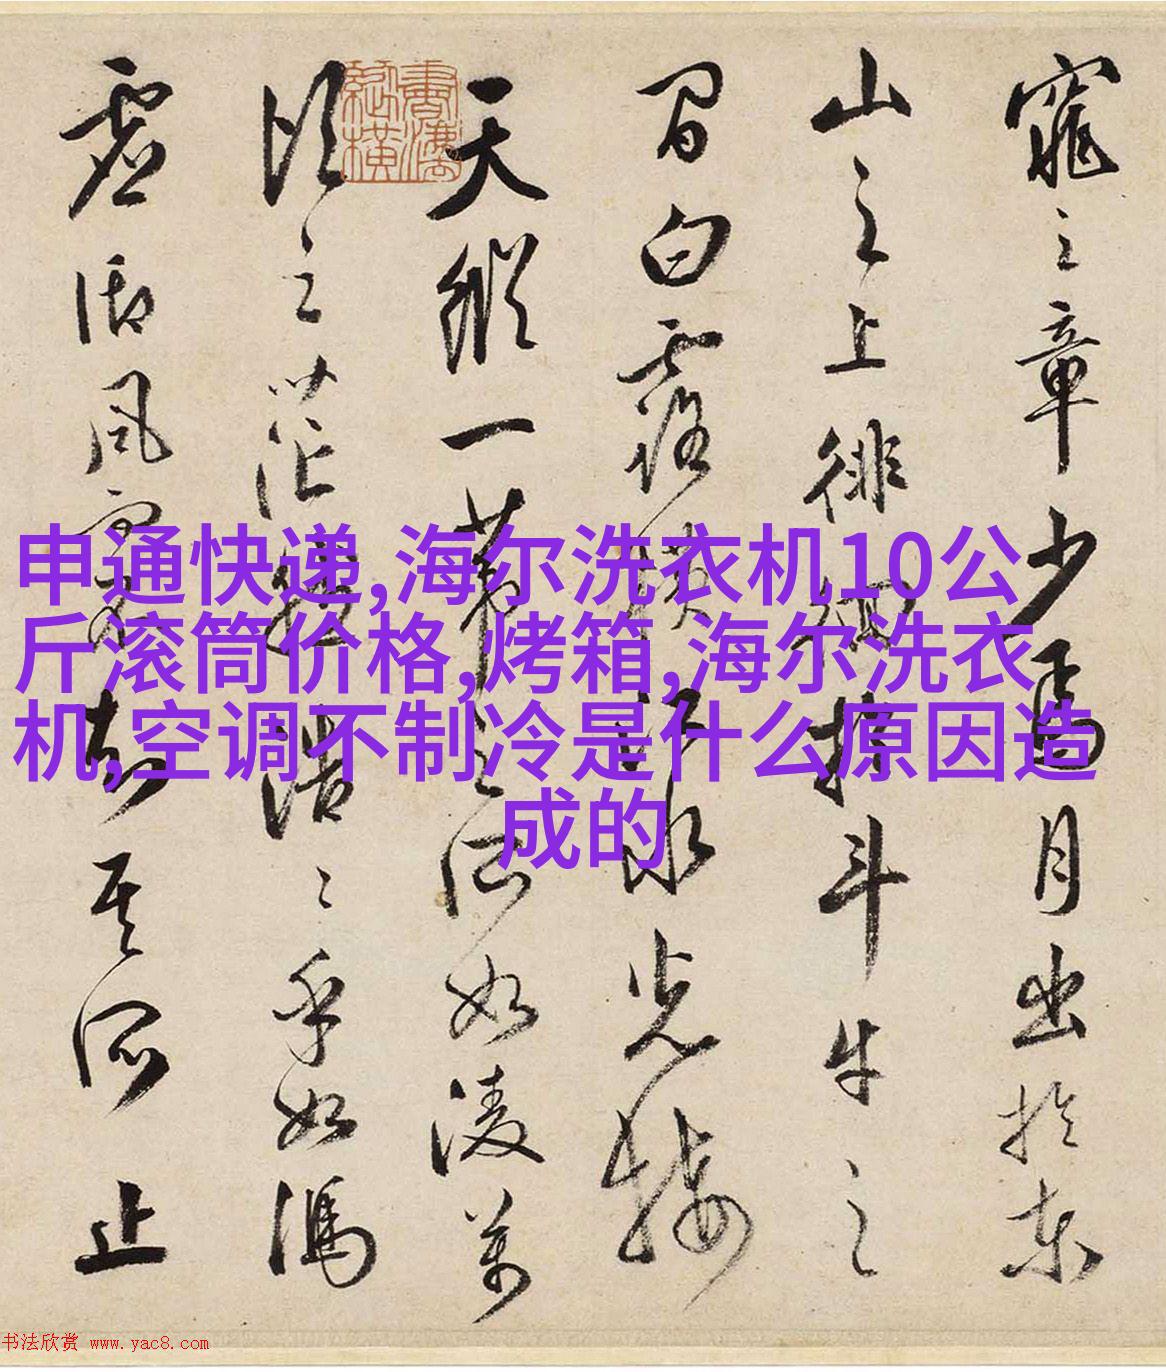 窕之章少焉月出於東
山之上徘徊於斗牛之
間白露横江水光接
天縱一葦之所如凌萬
頃之茫然浩〻乎如馮
虛御風而不知其所止
申通快递,海尔洗衣机10公
斤滚筒价格,烤箱,海尔洗衣
机,空调不制冷是什么原因造
成的
书法欣赏 www.yac8.com